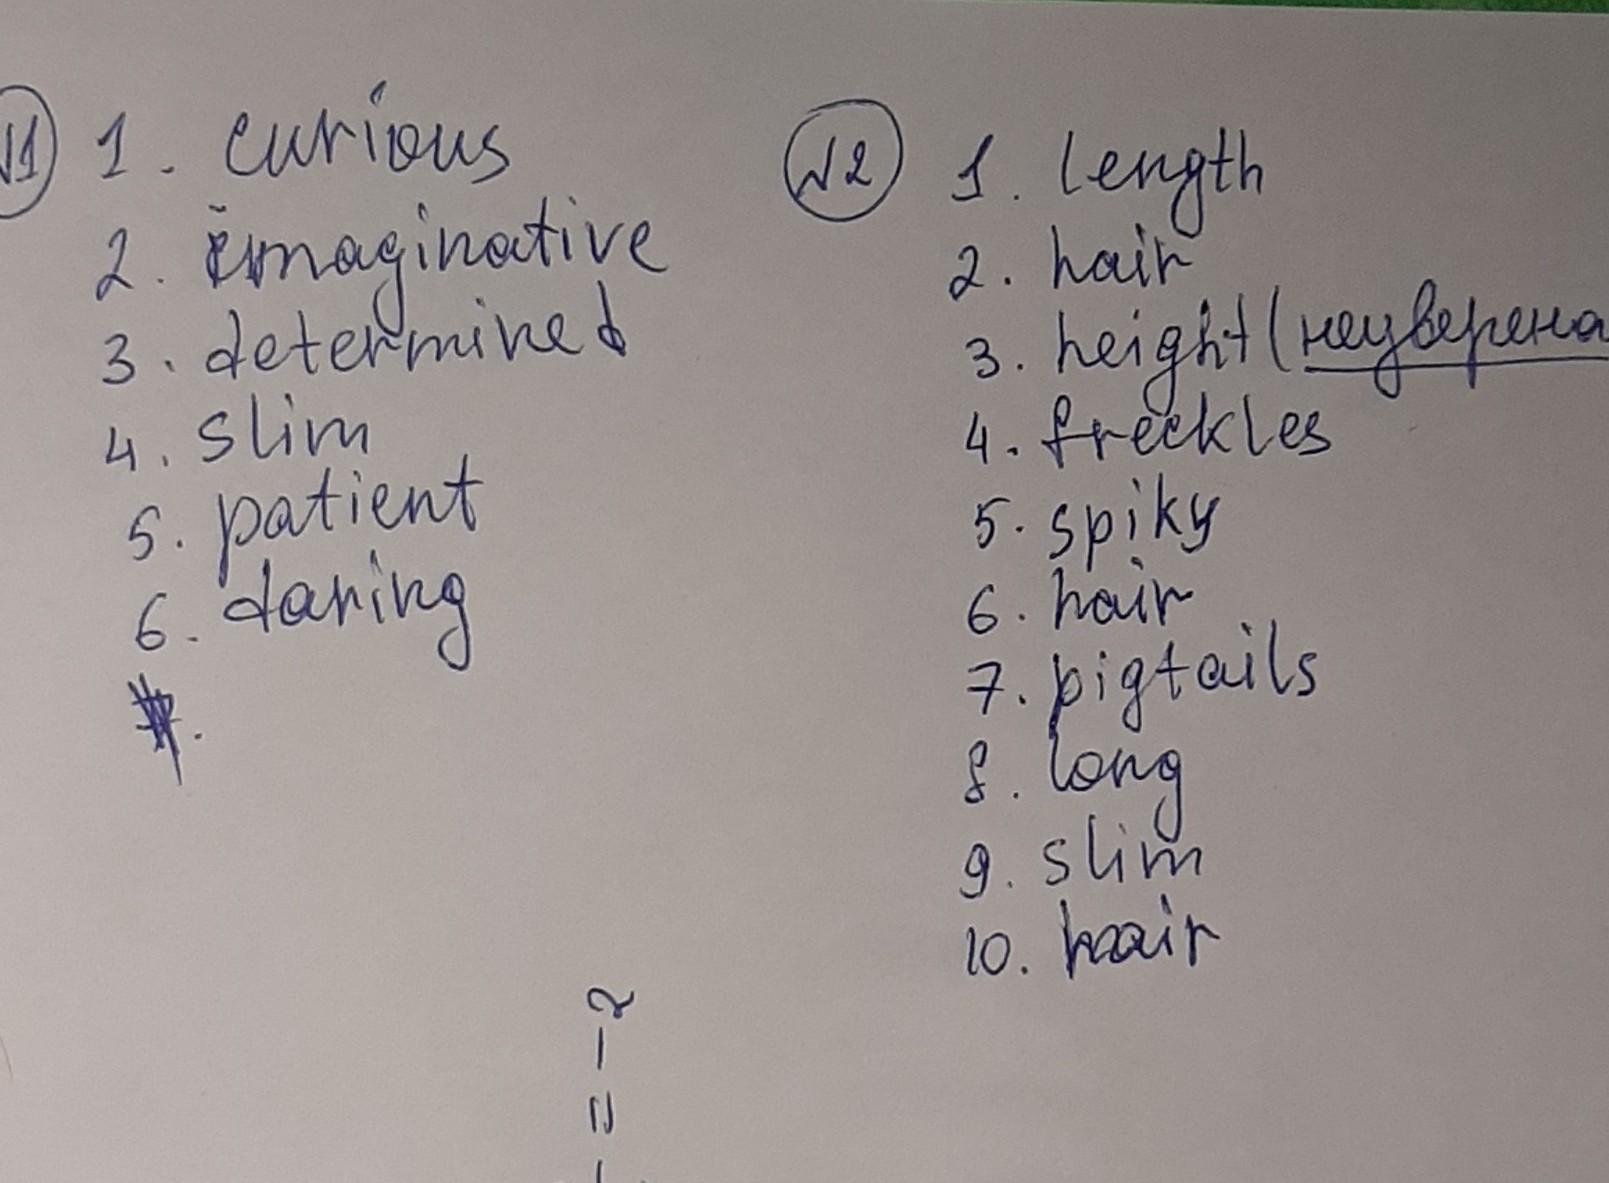 №1 1. curious
2. imaginative
3. determined
4. slim
5. patient
6. daring
№2 1. length
2. hair
3. height (неуверена
4. freckles
5. spiky
6. hair
7. pigtails
8. long
9. slim
10. hair